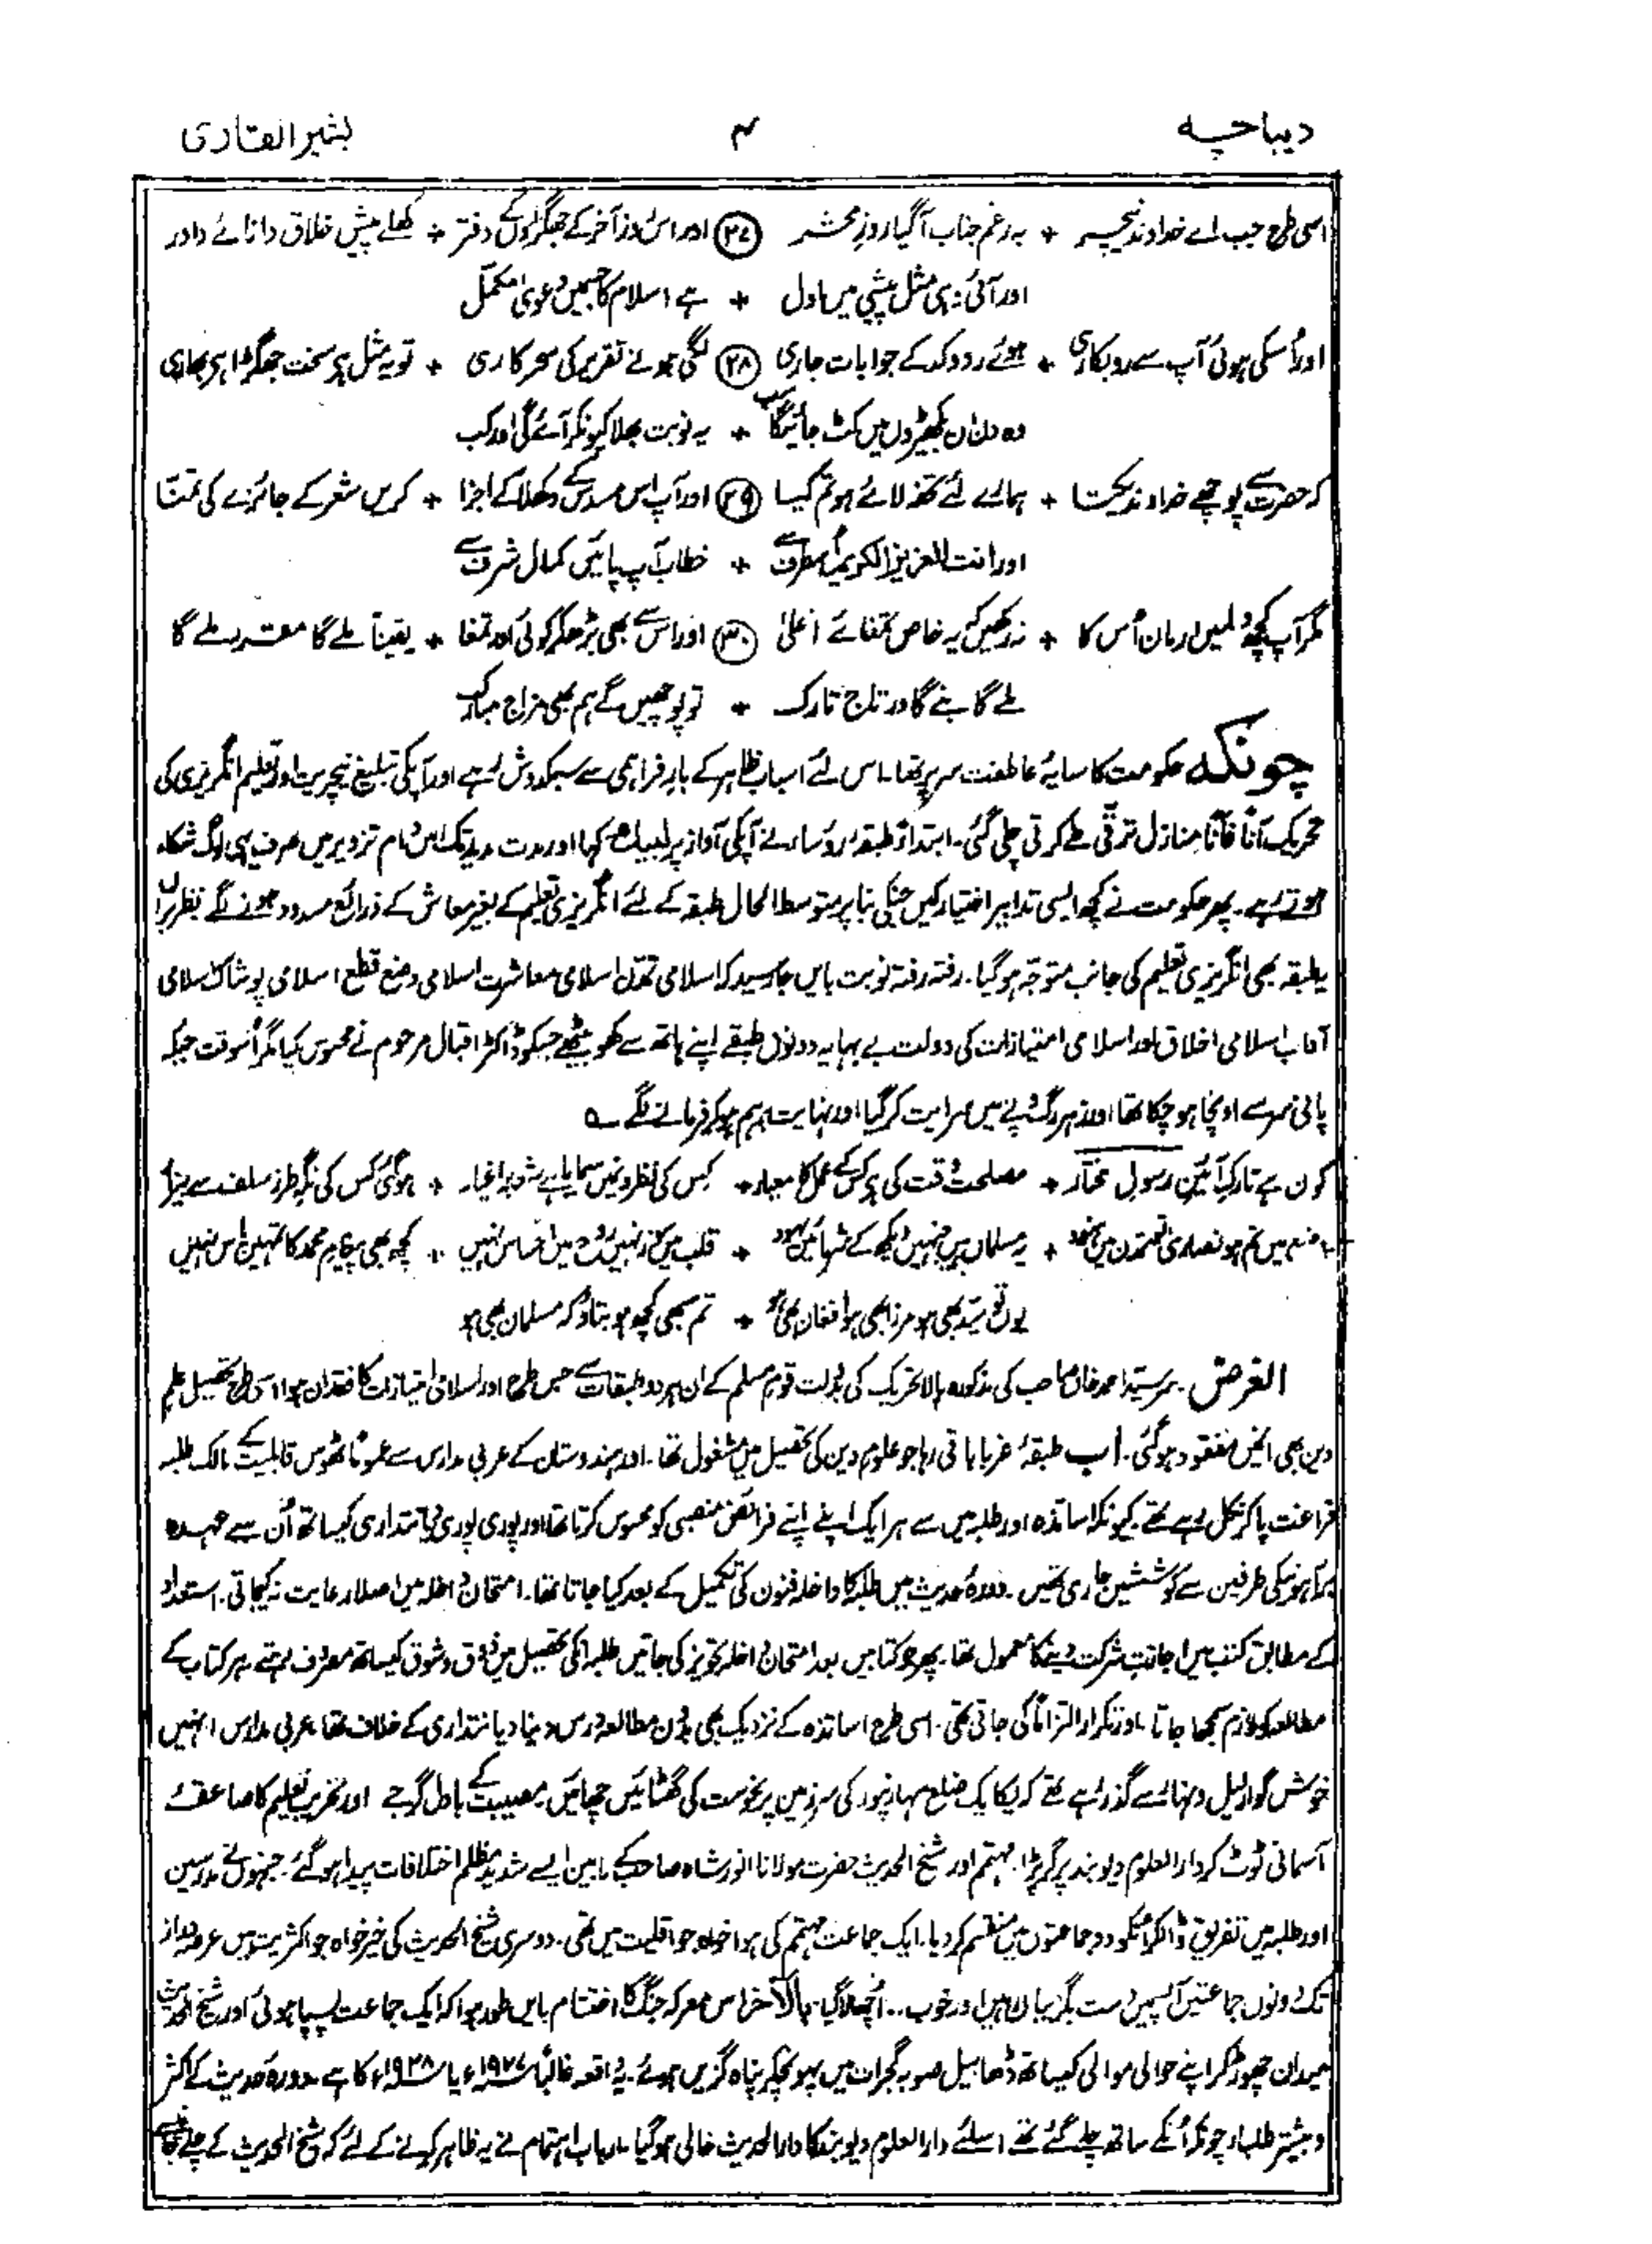 دیباچہ ۴ بشیر القاری
اسی طرح جب اے خداوند نیچر + بہ رغم جناب آگیا روز محشر (۲۷) اور اس روز آخر کے جھگڑوں کے دفتر + کھلے پیش خلاق دانائے داور
اور آئی یہی مثل پیشی میں اول + ہے اسلام کا جسمیں دعویٰ مکمل
اور اُسکی ہوئی آپ سے روبکاری + ہوئے رد و کد کے جوابات جاری (۲۸) لگی ہونے تقریر کی سحر کاری + تو یہ مثل پر سخت جھگڑا ہر بھاری
وہ دن ان بکھیڑوں میں کٹ جائیگا سب + یہ نوبت بھلا کیونکر آئے گی اور کب
کہ حضرت سے پوچھے خداوند یکتا + ہمارے لئے تحفہ لائے ہو تم کیا (۲۹) اور آپ اس مسدس کے دکھلا کے اجزا + کریں شعر کے جائزے کی تمنا
اور انت العزیز الکریم اُس طرف سے + خطاب آپ پائیں کمال شرف سے
مگر آپ کچھ دلمیں ارمان اُس کا + نہ رکھیں کہ یہ خاص تمغائے اعلیٰ (۳۰) اور اس سے بھی بڑھکر کوئی اور تمغا + یقیناً ملے گا مقرر ملے گا
ملے گا بنے گا در تاج تارک + تو پوچھیں گے ہم بھی مزاج مبارک
چونکہ حکومت کا سایۂ عاطفت سر پر تھا۔ اس لئے اسباب ظاہر کے بار فراہمی سے سبکدوش رہے اور آپکی تبلیغ نیچریت اور تعلیم انگریزی کی
تحریک آناً فآناً منازل ترقی طے کرتی چلی گئی۔ ابتداءً طبقۂ رؤساء نے آپکی آواز پر لبیک کہا اور مدت مدید تک اس دام تزویر میں صرف یہی لوگ شکار
ہوتے رہے۔ پھر حکومت نے کچھ ایسی تدابیر اختیار کیں جنکی بنا پر متوسط الحال طبقہ کے لئے انگریزی تعلیم کے بغیر معاش کے ذرائع مسدود ہونے لگے نظر براں
یہ طبقہ بھی انگریزی تعلیم کی جانب متوجہ ہوگیا۔ رفتہ رفتہ نوبت بایں جا رسید کہ اسلامی تمدن اسلامی معاشرت اسلامی وضع قطع اسلامی پوشاک اسلامی
آداب اسلامی اخلاق اور اسلامی امتیازات کی دولت بے بہا یہ دونوں طبقے اپنے ہاتھ سے کھو بیٹھے جسکو ڈاکٹر اقبال مرحوم نے محسوس کیا مگر اُسوقت جبکہ
پانی سر سے اونچا ہو چکا تھا اور زہر رگ و پے میں سرایت کر گیا اور نہایت برہم ہوکر فرمانے لگے ؎
کون ہے تارک آئین رسول مختار + مصلحت وقت کی ہے کس کے عمل کا معیار + کس کی نظروں میں سمایا ہے شعار اغیار + ہوگئی کس کی نگہ طرز سلف سے بیزار
وضع میں تم ہو نصاریٰ تو تمدن میں ہنود + یہ مسلماں ہیں جنہیں دیکھ کے شرمائیں یہود + قلب میں سوز نہیں روح میں احساس نہیں + کچھ بھی پیغام محمد کا تمہیں پاس نہیں
یوں تو سید بھی ہو مرزا بھی ہو افغان بھی ہو + تم سبھی کچھ ہو بتاؤ کہ مسلمان بھی ہو
الغرض۔ سرسید احمد خاں صاحب کی مذکورہ بالا تحریک کی بدولت قوم مسلم کے ان ہر دو طبقات سے جس طرح اور اسلامی امتیازات کا فقدان ہوا اسی طرح تحصیل علم
دین بھی انمیں مفقود ہوگئی۔ اب طبقۂ غربا باقی رہا جو علوم دین کی تحصیل میں مشغول تھا۔ اور ہندوستان کے عربی مدارس سے عموماً ٹھوس قابلیت کے مالک طلبہ
فراغت پاکر نکل رہے تھے۔ کیونکہ اساتذہ اور طلبہ میں سے ہر ایک اپنے اپنے فرائض منصبی کو محسوس کرتا تھا اور پوری پوری دیانتداری کیساتھ اُن سے عہدہ
برآ ہونیکی طرفین سے کوششیں جاری تھیں۔ دورۂ حدیث میں طلبہ کا داخلہ فنون کی تکمیل کے بعد کیا جاتا تھا۔ امتحان داخلہ میں اصلا رعایت نہ کیجاتی۔ استعداد
کے مطابق کتب میں اجازت شرکت دینے کا معمول تھا۔ پھر جو کتابیں بعد امتحان داخلہ تجویز کی جاتیں طلبہ انکی تحصیل میں ذوق و شوق کیساتھ مصروف رہتے۔ ہر کتاب کے
مطالعہ کو لازم سمجھا جاتا۔ اور تکرار التزاماً کی جاتی تھی۔ اسی طرح اساتذہ کے نزدیک بھی بدون مطالعہ درس دینا دیانتداری کے خلاف تھا۔ عربی مدارس انہیں
خوش گوار لیل و نہار سے گذر رہے تھے کہ یکایک ضلع سہارنپور کی سرزمین پر نحوست کی گھٹائیں چھائیں۔ مصیبت کے بادل گرجے اور تخریب تعلیم کا صاعقۂ
آسمانی ٹوٹ کر دارالعلوم دیوبند پر گر پڑا۔ مہتمم اور شیخ الحدیث حضرت مولانا انور شاہ صاحب کے مابین ایسے شدید مظلم اختلافات پیدا ہوگئے۔ جنہوں نے مدرسین
اور طلبہ میں تفریق ڈالکر انکو دو جماعتوں میں منقسم کر دیا۔ ایک جماعت مہتمم کی ہوا خواہ جو اقلیت میں تھی۔ دوسری شیخ الحدیث کی خیر خواہ جو اکثریت میں عرصۂ دراز
تک دونوں جماعتیں آپسمیں دست بگریباں رہیں اور خوب .. اُچھالا گیا۔ بالآخر اس معرکہ جنگ کا اختتام بایں طور ہوا کہ ایک جماعت پسپا ہوئی اور شیخ الحدیث
میدان چھوڑ کر اپنے حوالی موالی کیساتھ ڈھابیل صوبہ گجرات میں پہونچکر پناہ گزیں ہوئے۔ یہ واقعہ غالباً ۱۹۲۷ء یا ۱۹۲۸ء کا ہے۔ دورۂ حدیث کے اکثر
و بیشتر طلباء چونکہ اُنکے ساتھ چلے گئے تھے اسلئے دارالعلوم دیوبند کا دارالحدیث خالی ہوگیا۔ ارباب اہتمام نے یہ ظاہر کرنے کے لئے کہ شیخ الحدیث کے چلے جانے سے